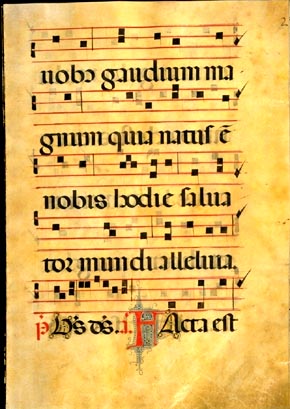 uobis gaudium ma
gnum quia natus ē
nobis hodie salua
tor mundi alleluia
p̄s dn̄s. Facta est